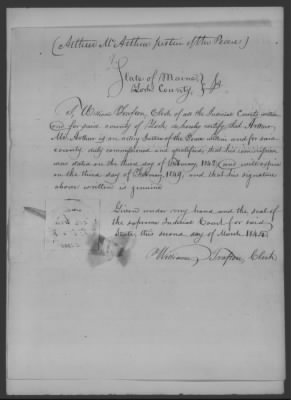 (Arthur McArthur justice of the Peace)
State of Maine }
York County, } ss.
I, William Trafton, Clerk of all the Judicial Courts within
and for said county of York do hereby certify that Arthur
McArthur is an acting Justice of the Peace within and for said
county duly commissioned and qualified; that his commission
was dated on the third day of February 1842 and will expire
on the third day of February, 1849, and that his signature
above written is genuine
Given under my hand and the seal of
the supreme Judicial Court for said
State, this second day of March 1844.
William Trafton, Clerk